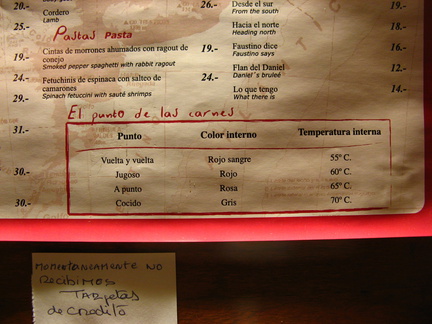 20.-
Cordero
Lamb
25.-
Pastas Pasta
Cintas de morrones ahumados con ragout de
conejo
19.-
Smoked pepper spaghetti with rabbit ragout
24.-
Fetuchinis de espinaca con salteo de
camarones
24.-
Spinach fetuccini with sauté shrimps
29.-
31.-
30.-
30.-
26.-
Desde el sur
19.-
From the south
Hacia el norte
18.-
Heading north
Faustino dice
16.-
Faustino says
Flan del Daniel
12.-
Daniel's brulee
Lo que tengo
14.-
What there is
El punto de las carnes
Punto Color interno Temperatura interna
Vuelta y vuelta Rojo sangre 55º C.
Jugoso Rojo 60º C.
A punto Rosa 65º C.
Cocido Gris 70º C.
MOMENTANEAMENTE NO
RECIBIMOS
TARJETAS
de CREDITO